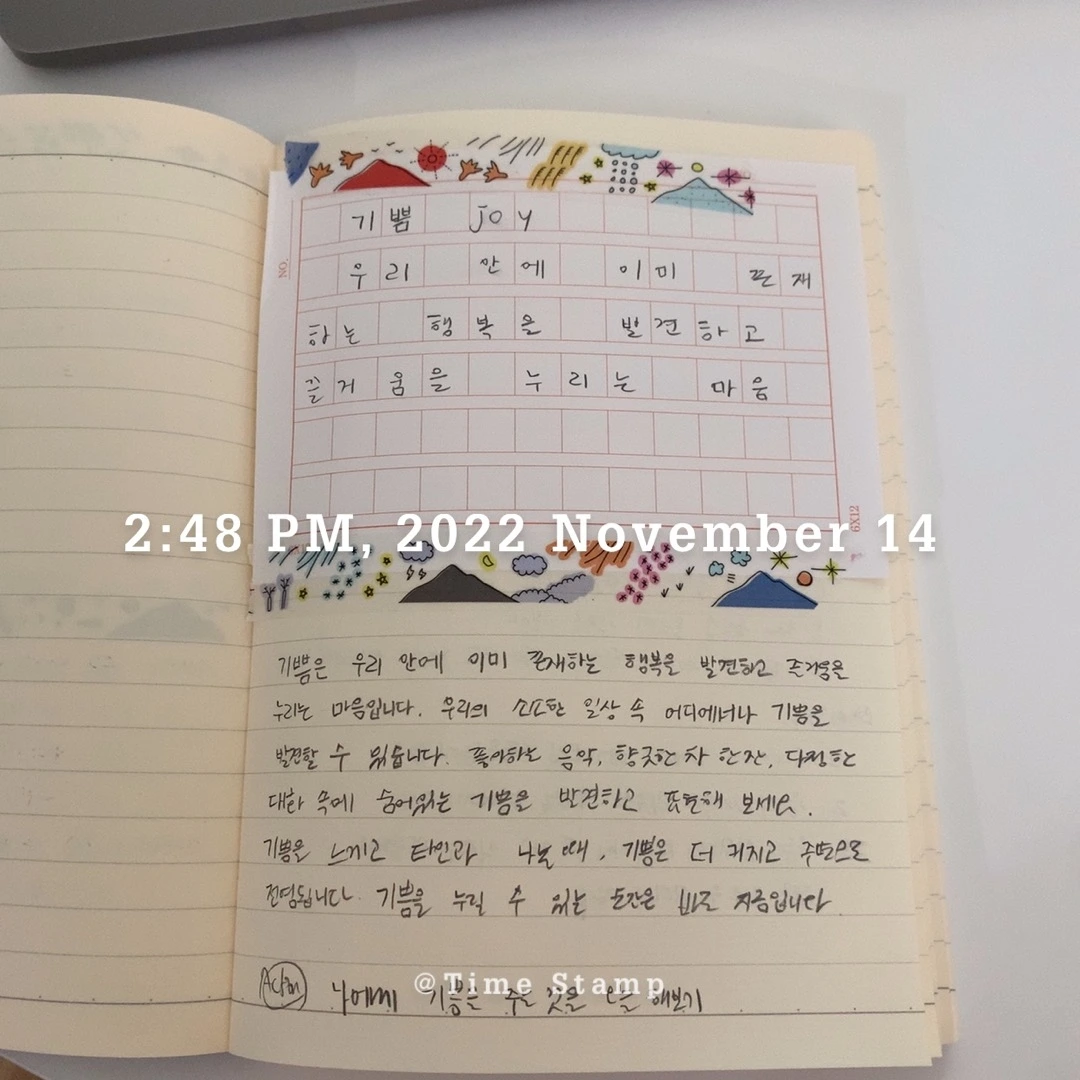 기쁨 joy
우리 안에 이미 존재
하는 행복을 발견하고
즐거움을 누리는 마음
NO.
6X12
2:48 PM, 2022 November 14
기쁨은 우리 안에 이미 존재하는 행복을 발견하고 즐거움을
누리는 마음입니다. 우리의 소소한 일상 속 어디에서나 기쁨을
발견할 수 있습니다. 좋아하는 음악, 향긋한 차 한 잔, 다정한
대화 속에 숨어있는 기쁨을 발견하고 표현해 보세요.
기쁨을 느끼고 타인과 나눌 때, 기쁨은 더 커지고 주변으로
전염됩니다. 기쁨을 누릴 수 있는 순간은 바로 지금입니다.
@Time Stamp
나에게 기쁨을 주는 것을 오늘 해보기